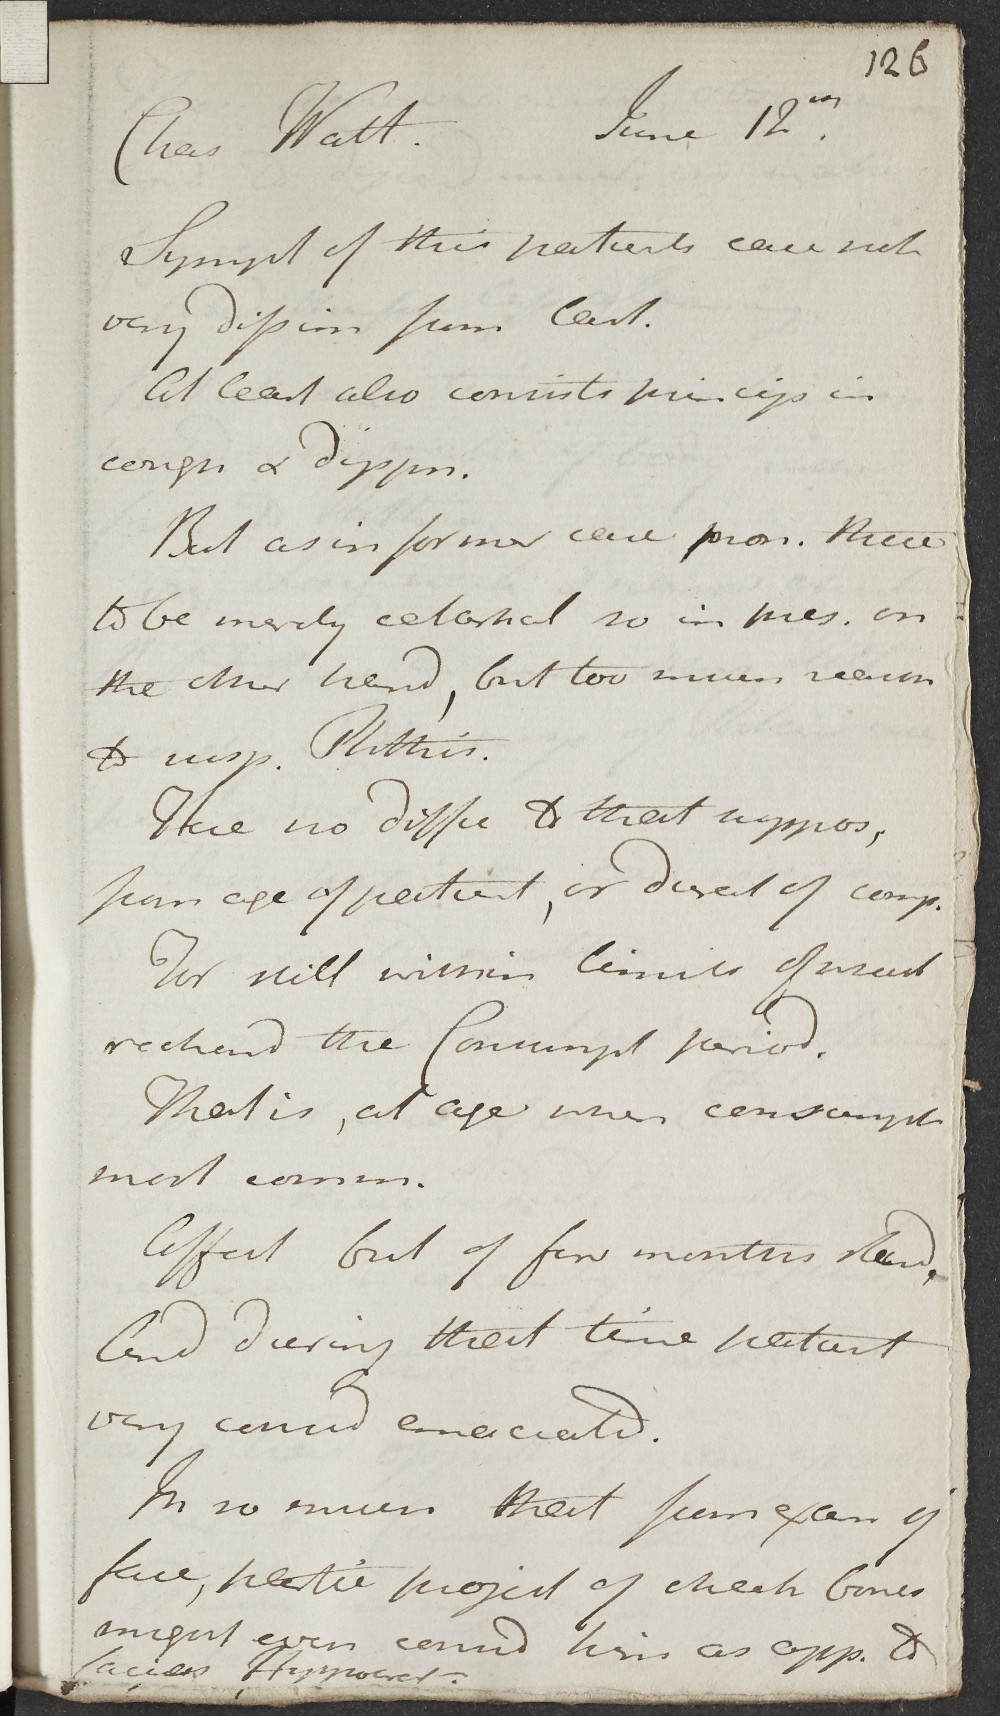 126
Chas Watt. June 12th.
Sympt of this patients case not
very dissim from last.
At least also consists princip in
cough & dyspn.
But as in former case pron. these
to be merely catarhal so in pres. on
the other hand, but too much reason
to susp. Phthis.
Have no diffic to that suppos,
from age of patient, or durat of comp.
For still within limits of what
reckond the Consumpt period.
That is, at age when consumpt
most comm.
Affect but of few months stand,
And during that time patient
very consid emaciatd.
In so much that from exam of
face, partic project of cheek bones
might even consid him as app. to
facies Hyppocrat.